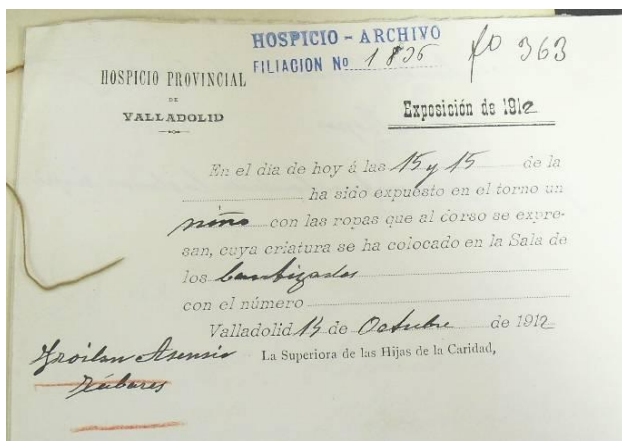 HOSPICIO - ARCHIVO
FILIACION Nº 1836
fº 363
HOSPICIO PROVINCIAL
DE
VALLADOLID
Exposición de 1912
En el día de hoy á las 15 y 15 de la
ha sido expuesto en el torno un
niño con las ropas que al dorso se expre-
san, cuya criatura se ha colocado en la Sala de
los bautizados
con el número
Valladolid 15 de Octubre de 1912
Froilan Asensio
La Superiora de las Hijas de la Caridad,